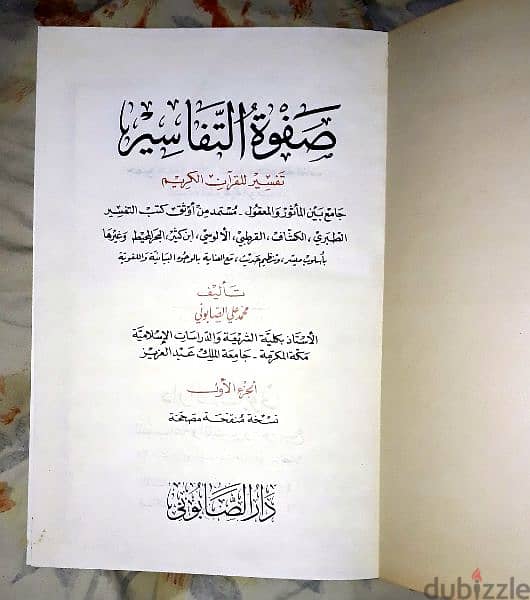 صفوة التفاسير
تفسير للقرآن الكريم
جامع بين المأثور والمعقول - مستمد من أوثق كتب التفسير
الطبري، الكشاف، القرطبي، الآلوسي، ابن كثير، البحر المحيط وغيرها
بأسلوب ميسر، وتنظيم حديث، مع العناية بالوجوه البيانية واللغوية
تأليف
محمد علي الصابوني
الأستاذ بكلية الشريعة والدراسات الإسلامية
مكة المكرمة - جامعة الملك عبد العزيز
الجزء الأول
نسخة منقحة مصححة
دار الصابوني
dubizzle